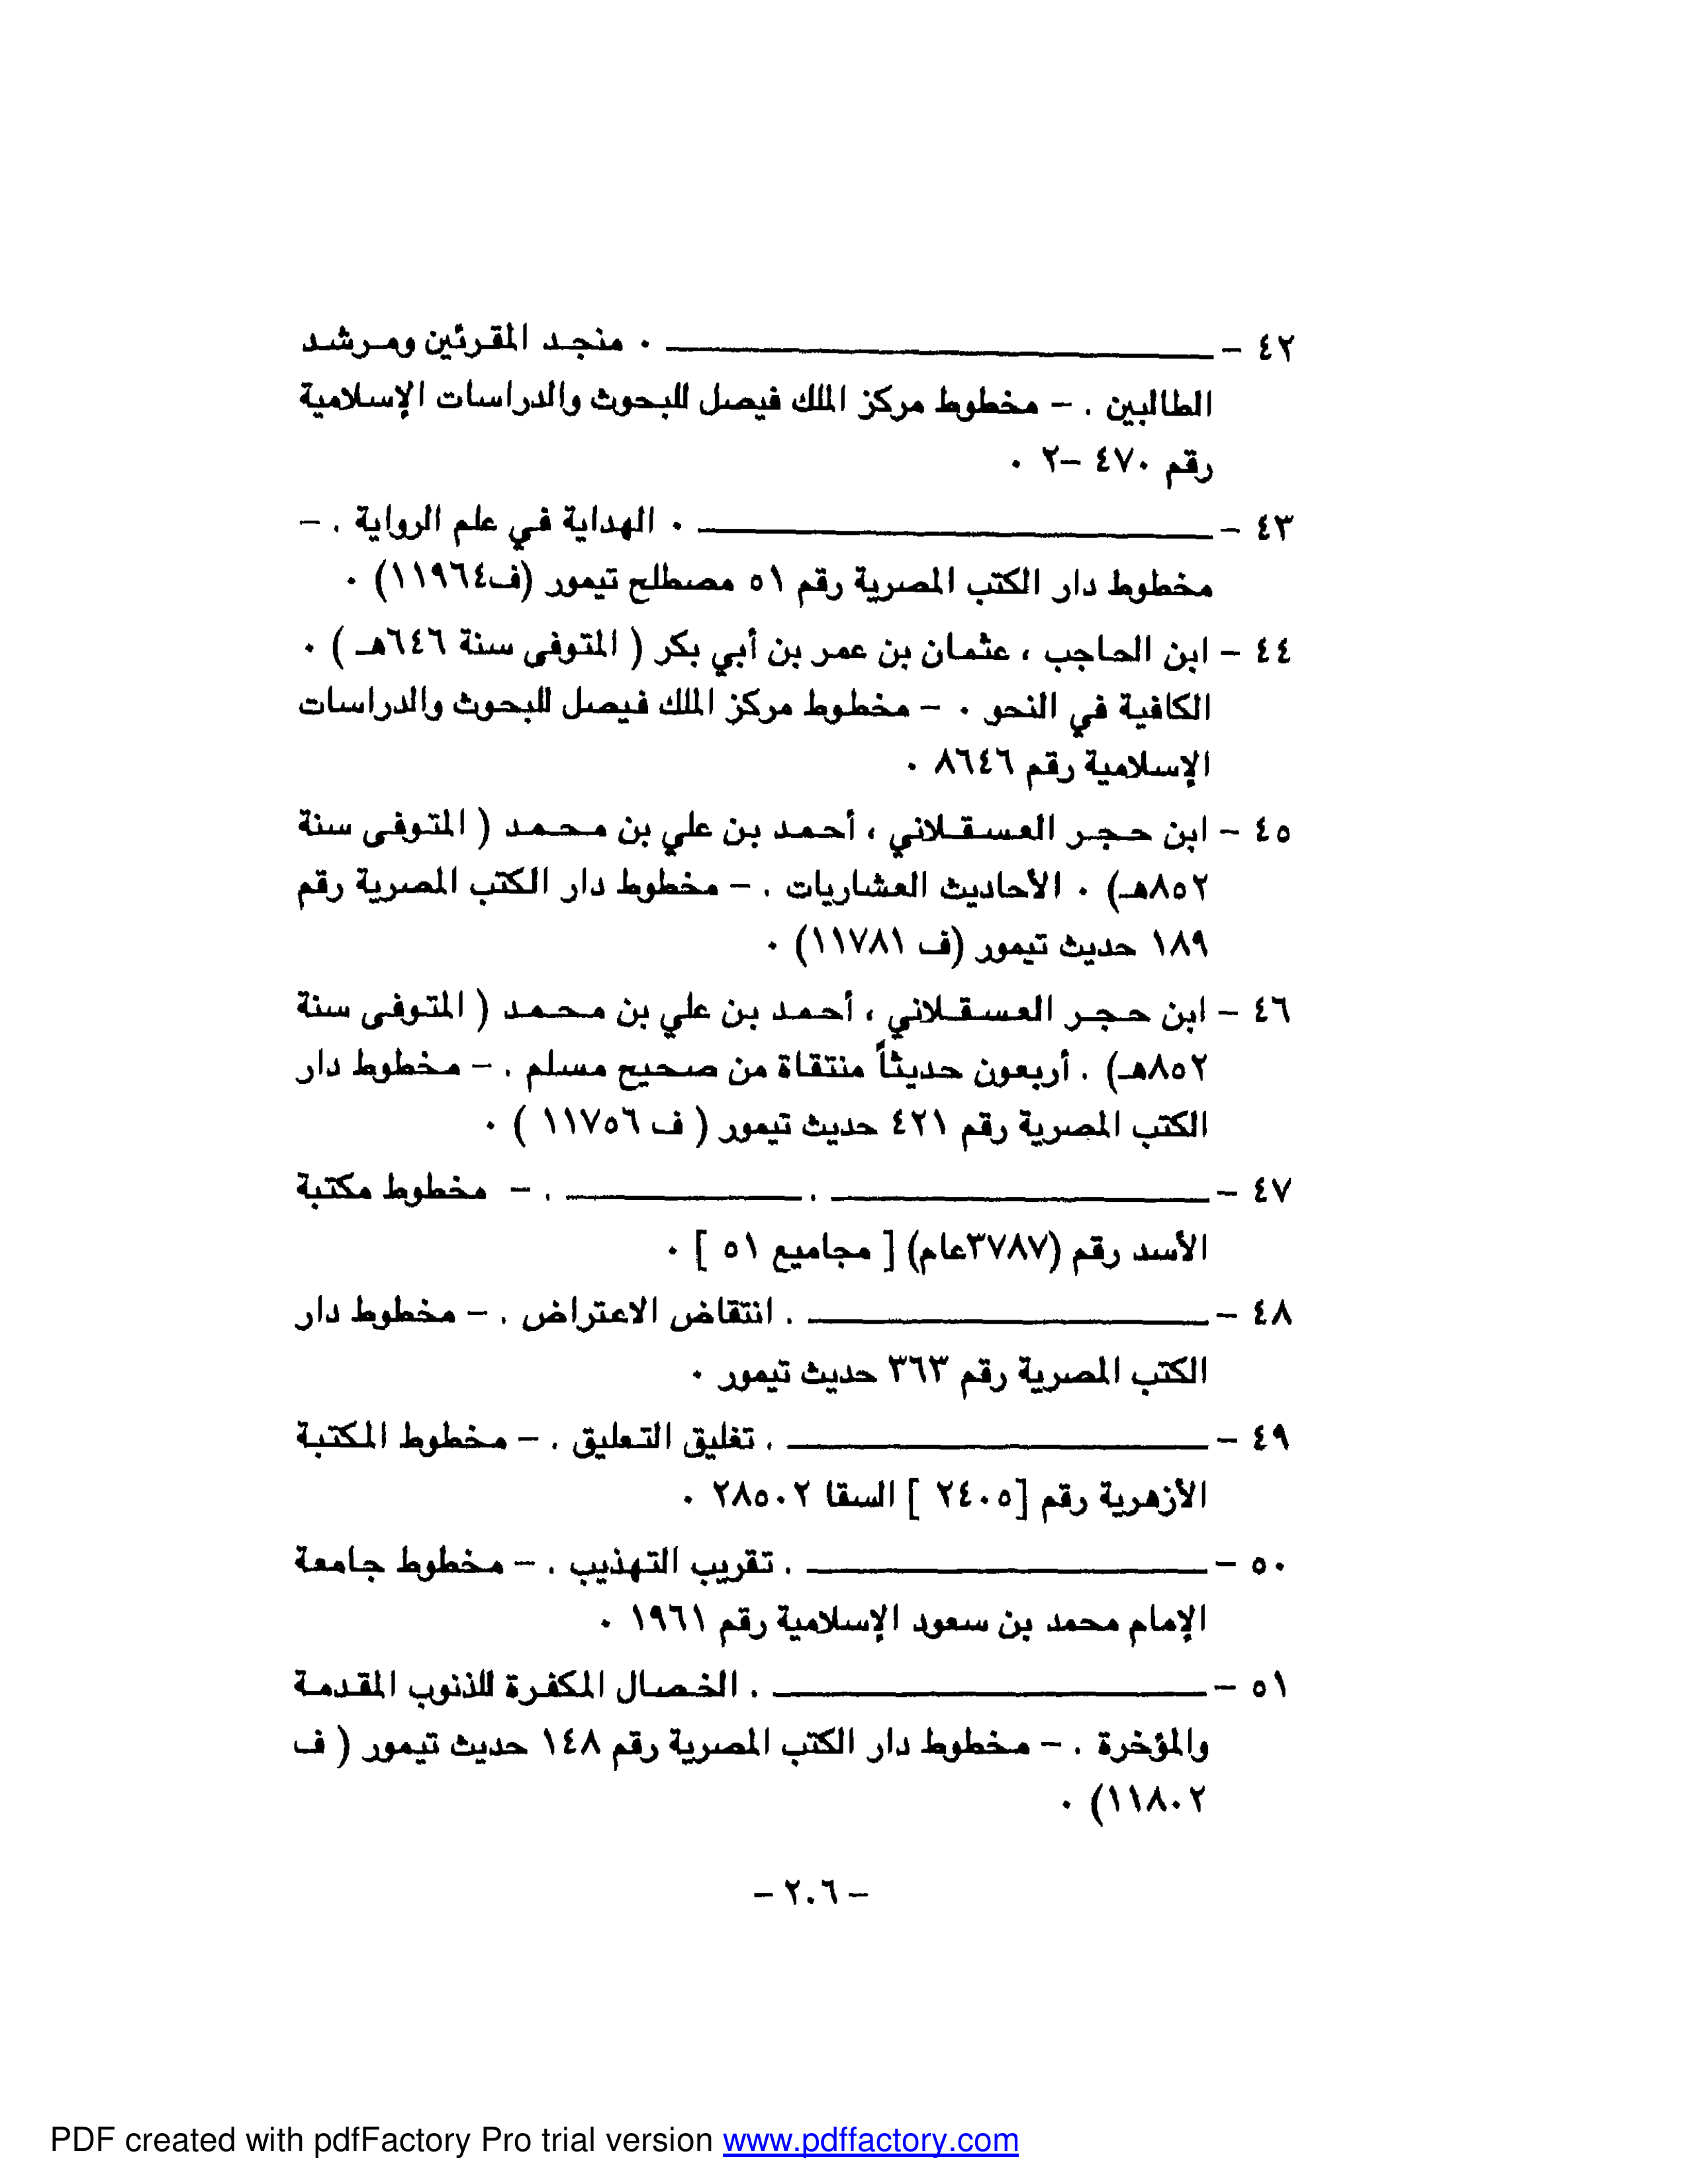 ٤٢ - ـــــــــــــــــــــــــــــ . منجد المقرئين ومرشد
الطالبين . - مخطوط مركز الملك فيصل للبحوث والدراسات الإسلامية
رقم ٤٧٠ -٢ .
٤٣ - ـــــــــــــــــــــــــــــ . الهداية في علم الرواية . -
مخطوط دار الكتب المصرية رقم ٥١ مصطلح تيمور (ف١١٩٦٤) .
٤٤ - ابن الحاجب ، عثمان بن عمر بن أبي بكر ( المتوفى سنة ٦٤٦هـ ) .
الكافية في النحو . - مخطوط مركز الملك فيصل للبحوث والدراسات
الإسلامية رقم ٨٦٤٦ .
٤٥ - ابن حجر العسقلاني ، أحمد بن علي بن محمد ( المتوفى سنة
٨٥٢هـ) . الأحاديث العشاريات . - مخطوط دار الكتب المصرية رقم
١٨٩ حديث تيمور (ف ١١٧٨١) .
٤٦ - ابن حجر العسقلاني ، أحمد بن علي بن محمد ( المتوفى سنة
٨٥٢هـ) . أربعون حديثاً منتقاة من صحيح مسلم . - مخطوط دار
الكتب المصرية رقم ٤٢١ حديث تيمور ( ف ١١٧٥٦ ) .
٤٧ - ــــــــــــــــــــــ . ــــــــــــــ . - مخطوط مكتبة
الأسد رقم (٣٧٨٧عام) [ مجاميع ٥١ ] .
٤٨ - ــــــــــــــــــــــ . انتقاض الاعتراض . - مخطوط دار
الكتب المصرية رقم ٣٦٣ حديث تيمور .
٤٩ - ــــــــــــــــــــــ . تغليق التعليق . - مخطوط المكتبة
الأزهرية رقم [٢٤٠٥ ] السقا ٢٨٥٠٢ .
٥٠ - ــــــــــــــــــــــ . تقريب التهذيب . - مخطوط جامعة
الإمام محمد بن سعود الإسلامية رقم ١٩٦١ .
٥١ - ــــــــــــــــــــــ . الخصال المكفرة للذنوب المقدمة
والمؤخرة . - مخطوط دار الكتب المصرية رقم ١٤٨ حديث تيمور ( ف
١١٨٠٢) .
- ٢٠٦ -
PDF created with pdfFactory Pro trial version www.pdffactory.com